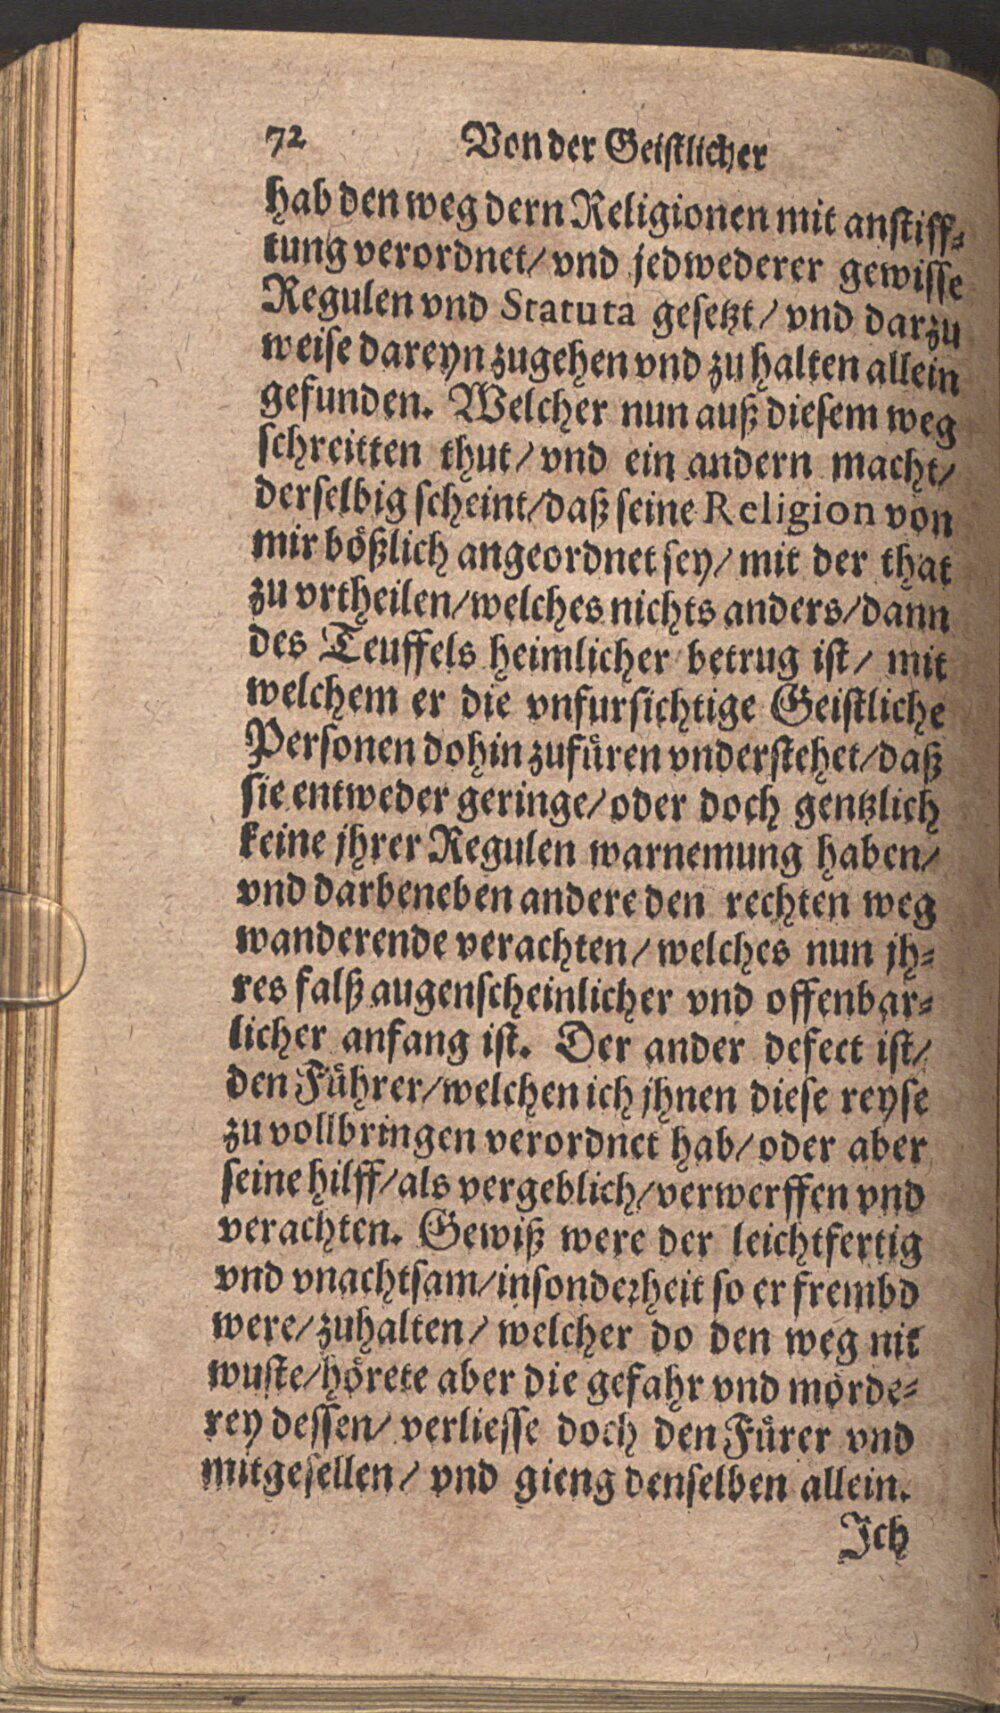 72 Von der Geistlicher
hab den weg dern Religionen mit anstiff-
tung verordnet/ vnd jedwederer gewisse
Regulen vnd Statuta gesetzt/ vnd darzu
weise dareyn zugehen vnd zu halten allein
gefunden. Welcher nun auß diesem weg
schreitten thut/ vnd ein andern macht/
derselbig scheint/ daß seine Religion von
mir bößlich angeordnet sey/ mit der that
zu vrtheilen/ welches nichts anders/ dann
des Teuffels heimlicher betrug ist/ mit
welchem er die vnfursichtige Geistliche
Personen dohin zufüren vnderstehet/ daß
sie entweder geringe/ oder doch gentzlich
keine jhrer Regulen warnemung haben/
vnd darbeneben andere den rechten weg
wanderende verachten/ welches nun jh-
res falß augenscheinlicher vnd offenbar-
licher anfang ist. Der ander defect ist/
den Führer/ welchen ich jhnen diese reyse
zu vollbringen verordnet hab/ oder aber
seine hilff/ als vergeblich/ verwerffen vnd
verachten. Gewiß were der leichtfertig
vnd vnachtsam/ insonderheit so er frembd
were/ zuhalten/ welcher do den weg nit
wuste/ hörete aber die gefahr vnd mörde-
rey dessen/ verliesse doch den Fürer vnd
mitgesellen/ vnd gieng denselben allein.
Jch